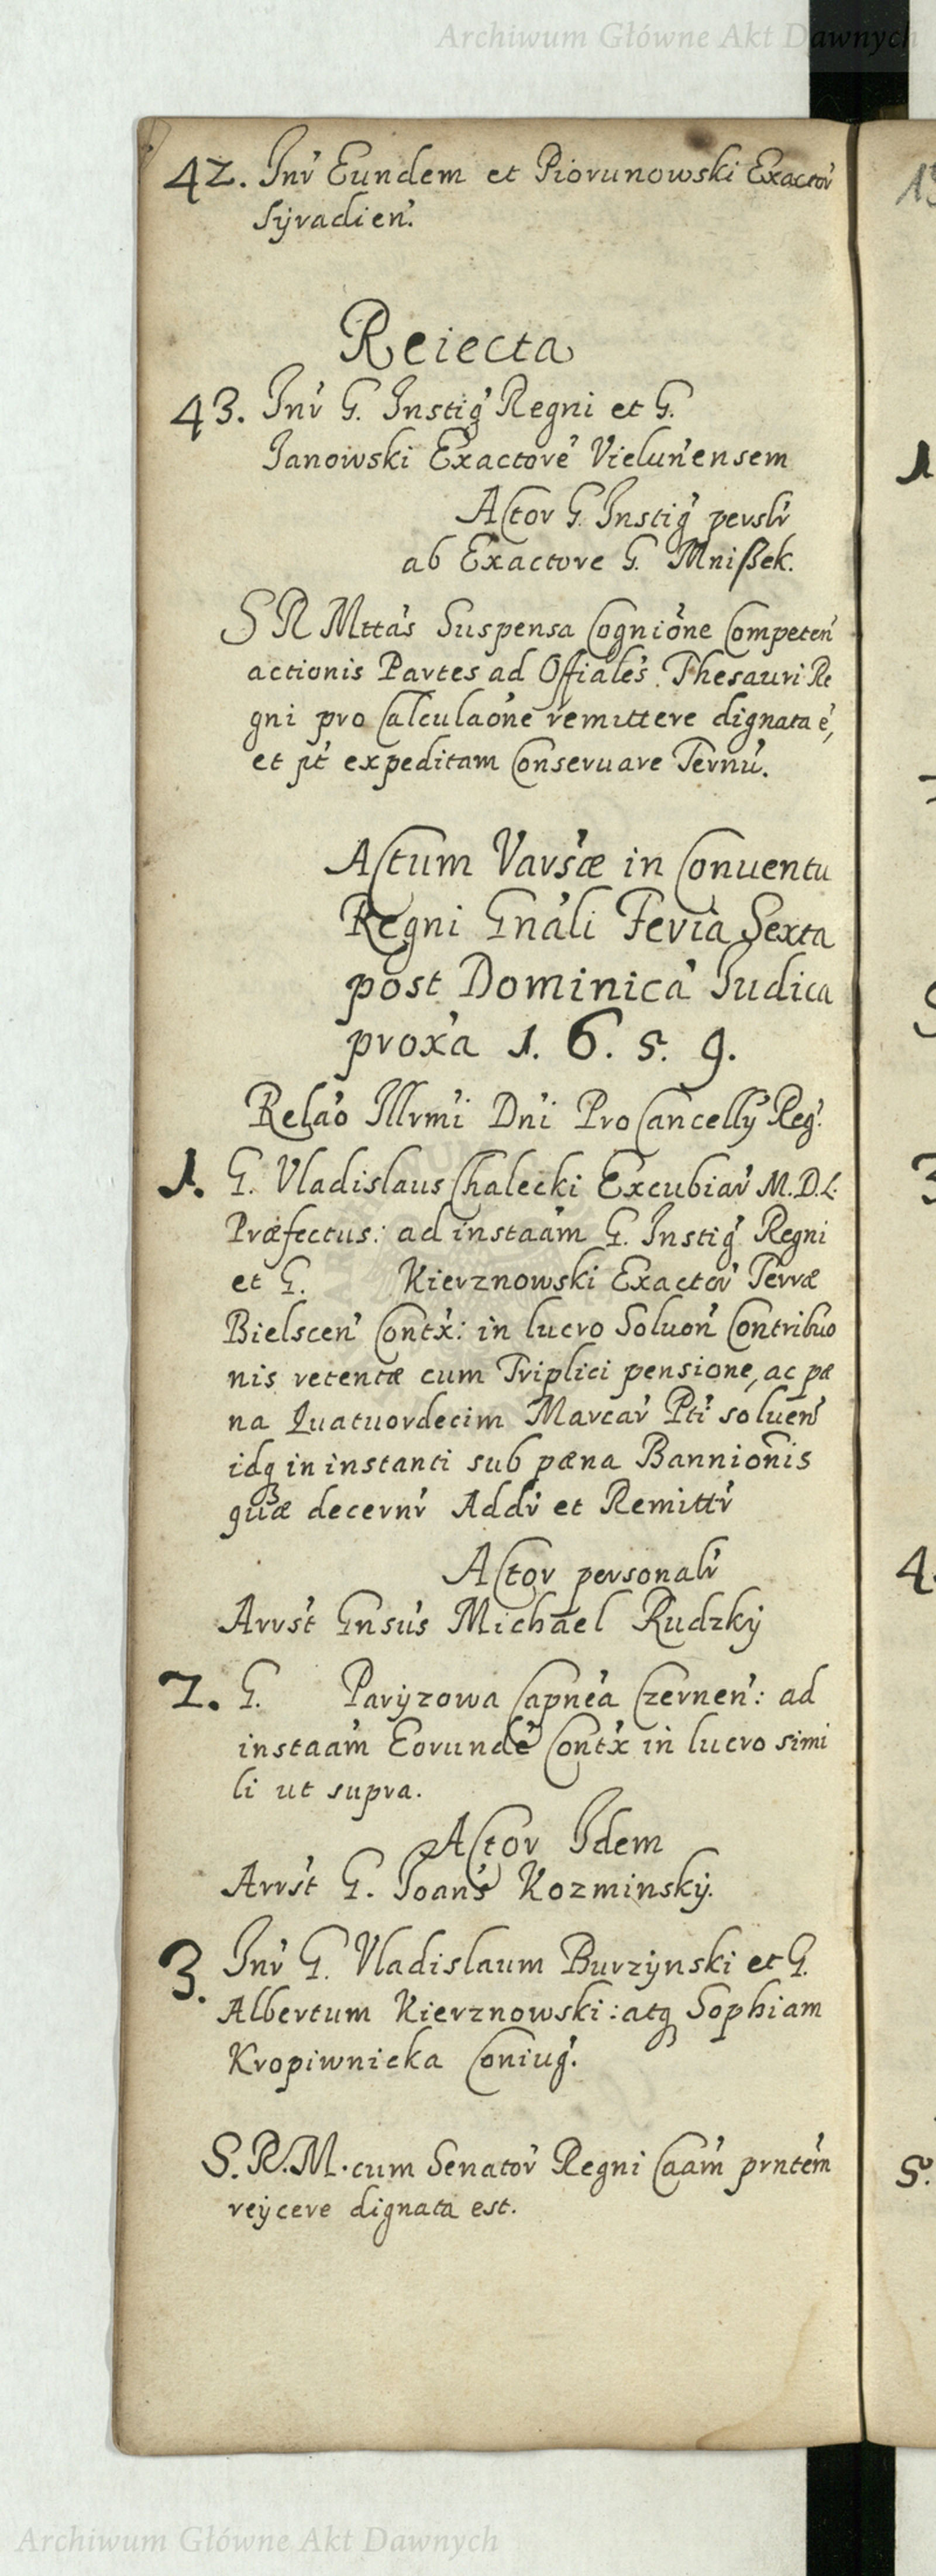 Archiwum Główne Akt Dawnych
42. Inr̃ Eundem et Piorunowski Exactor̃
Syradien̄.
Reiecta
43. Inr̃ G. Instig̃ Regni et G.
Janowski Exactorē Vielun̄ensem
Actor G. Instig̃ perslr̃
ab Exactore G. Mnißek.
S R Mttās Suspensa Cogniōne Competen̄
actionis Partes ad Offialēs Thesauri Re
gni pro Calculaōne remittere dignata ē,
et pt̄ expeditam Conservare Ternū.
Actum Varsæ in Conuentu
Regni Gnāli Feria Sexta
post Dominicā Iudica
proxā 1. 6. 5. 9.
Relāo Illrmī Dnī ProCancellÿ Reg̃.
1. G. Vladislaus Chalecki Excubiar̃ M.D.L.
Præfectus: ad instaām G. Instig̃ Regni
et G. Kierznowski Exactor̃ Terræ
Bielscen̄ Contx̃: in lucro Soluon̄ Contribuō
nis retentæ cum Triplici pensione, ac pæ
na Quatuordecim Marcar̃ Ptī soluen̄
idq̃ in instanti sub pæna Banniōnis
quæ decernr̃ Addr̃ et Remittr̃
Actor personalr̃
Arrs̃t Gnsūs Michael Rudzkÿ
2. G. Paryzowa Capnēa Czernen̄: ad
instaām Eorundē Contx̃ in lucro simi
li ut supra.
Actor Idem
Arrs̃t G. Joans̃ Kozminskÿ.
3. Inr̃ G. Vladislaum Burzÿnski et G.
Albertum Kierznowski: atq̃ Sophiam
Kropiwnicka Coniug̃.
S. R. M. cum Senator̃ Regni Caām prntēm
reÿcere dignata est.
Archiwum Główne Akt Dawnych